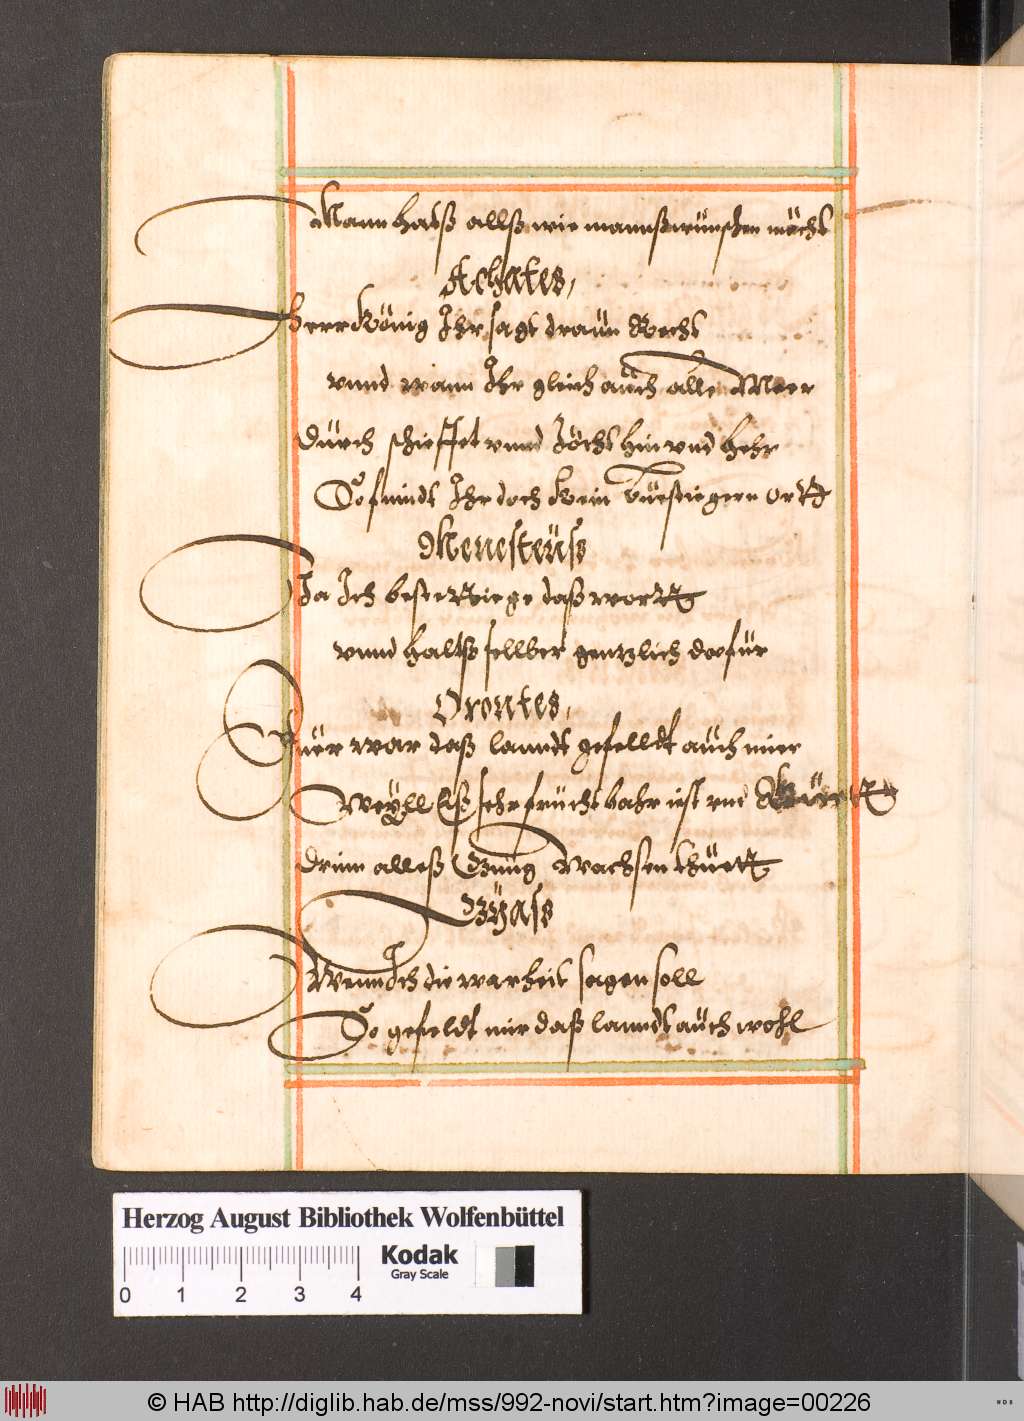 Mann hatß allß wie mannß wünschen möcht
Achates,
Herr König Ihr sagt draun Recht
vnnd wann Ihr gleich auch alle Meer
durch schieffet vnnd Zöcht hin vnd hehr
So findt Ihr doch kein ortt
Menesteüß
Ja Ich bestettiege daß wortt
vnnd haltß sellber gentzlich dorfür
Orontes,
war daß lanndt gefelldt auch mier
Weÿll Eß sehr frücht bahr ist vnd
drinn alleß Gnüg Wachsen thuett
Gÿaß
Wenn Ich die warheit sagen soll
So gefeldt mir daß lanndt auch wohl
Herzog August Bibliothek Wolfenbüttel
Kodak
Gray Scale
0 1 2 3 4
© HAB http://diglib.hab.de/mss/992-novi/start.htm?image=00226